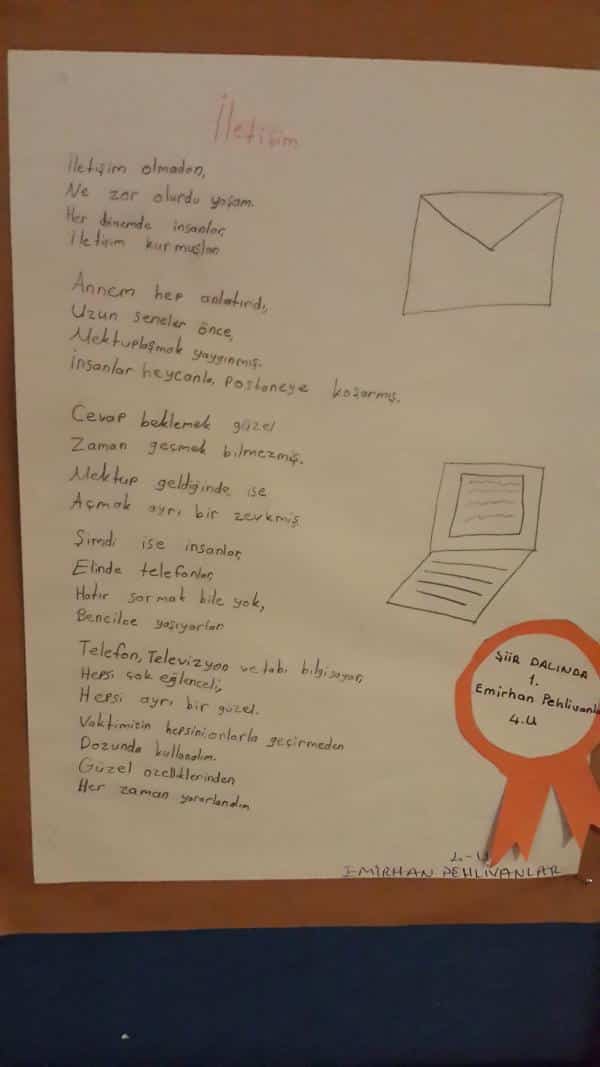 İletişim
İletişim olmadan,
Ne zor olurdu yaşam.
Her dönemde insanlar,
İletişim kurmuşlar
Annem hep anlatırdı,
Uzun seneler önce,
Mektuplaşmak yaygınmış.
İnsanlar heycanla, Postaneye koşarmış.
Cevap beklemek güzel
Zaman geçmek bilmezmiş.
Mektup geldiğinde ise
Açmak ayrı bir zevkmiş
Şimdi ise insanlar,
Elinde telefonlar,
Hatır sormak bile yok,
Bencilce yaşıyorlar
Telefon, Televizyon ve tabi bilgisayar,
Hepsi çok eğlenceli,
Hepsi ayrı bir güzel.
Vaktimizin hepsini onlarla geçirmeden
Dozunda kullanalım.
Güzel özelliklerinden
Her zaman yararlanalım
ŞİİR DALINDA
1.
Emirhan Pehlivanla
4.U
4-U
EMİRHAN PEHLİVANLAR